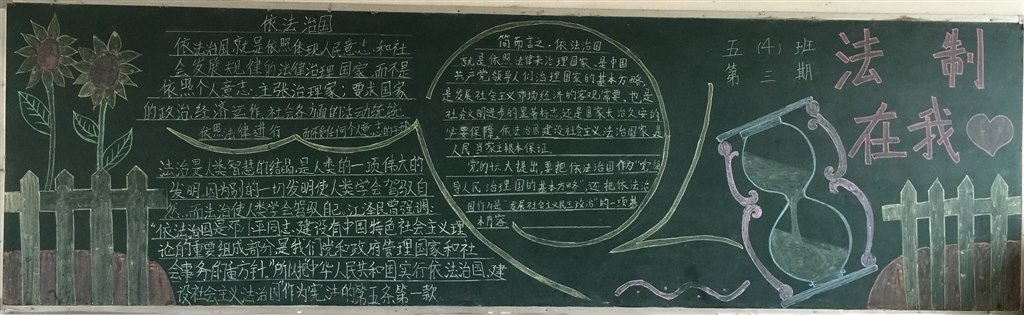 依法治国
依法治国就是依照体现人民意志和社
会发展规律的法律治理国家,而不是
依照个人意志、主张治理国家;要求国家
的政治、经济运作、社会各方面的活动统统
依照法律进行
而不受任何个人意志的干预
法治是人类智慧的结晶,是人类的一项伟大的
发明,因为别的一切发明使人类学会驾驭自
然,而法治使人类学会驾驭自己,江泽民曾强调:
"依法治国是邓小平同志建设有中国特色社会主义理
论的重要组成部分是我们党和政府管理国家和社
会事务的
人民共和国实行依法治国,建
设社会主义法治国"作为宪法的第五条第一款
简而言之,依法治国
就是依照法律来治理国家,是中国
共产党领导人们治理国家的基本方略
是发展社会主义市场经济的客观需要,也是
社会文明进步的显著标志,还是国家长治久安的
必要保障。依法治国,建设社会主义法治国家,是
人民当家主根本保证。
党的
大提出,要把依法治国作为"党领
导人民治理国的基本方略",还把依法治
国作为是"发展社会主义民主政治"的一项基
本内容
五(4)班
第三期
法制
在我